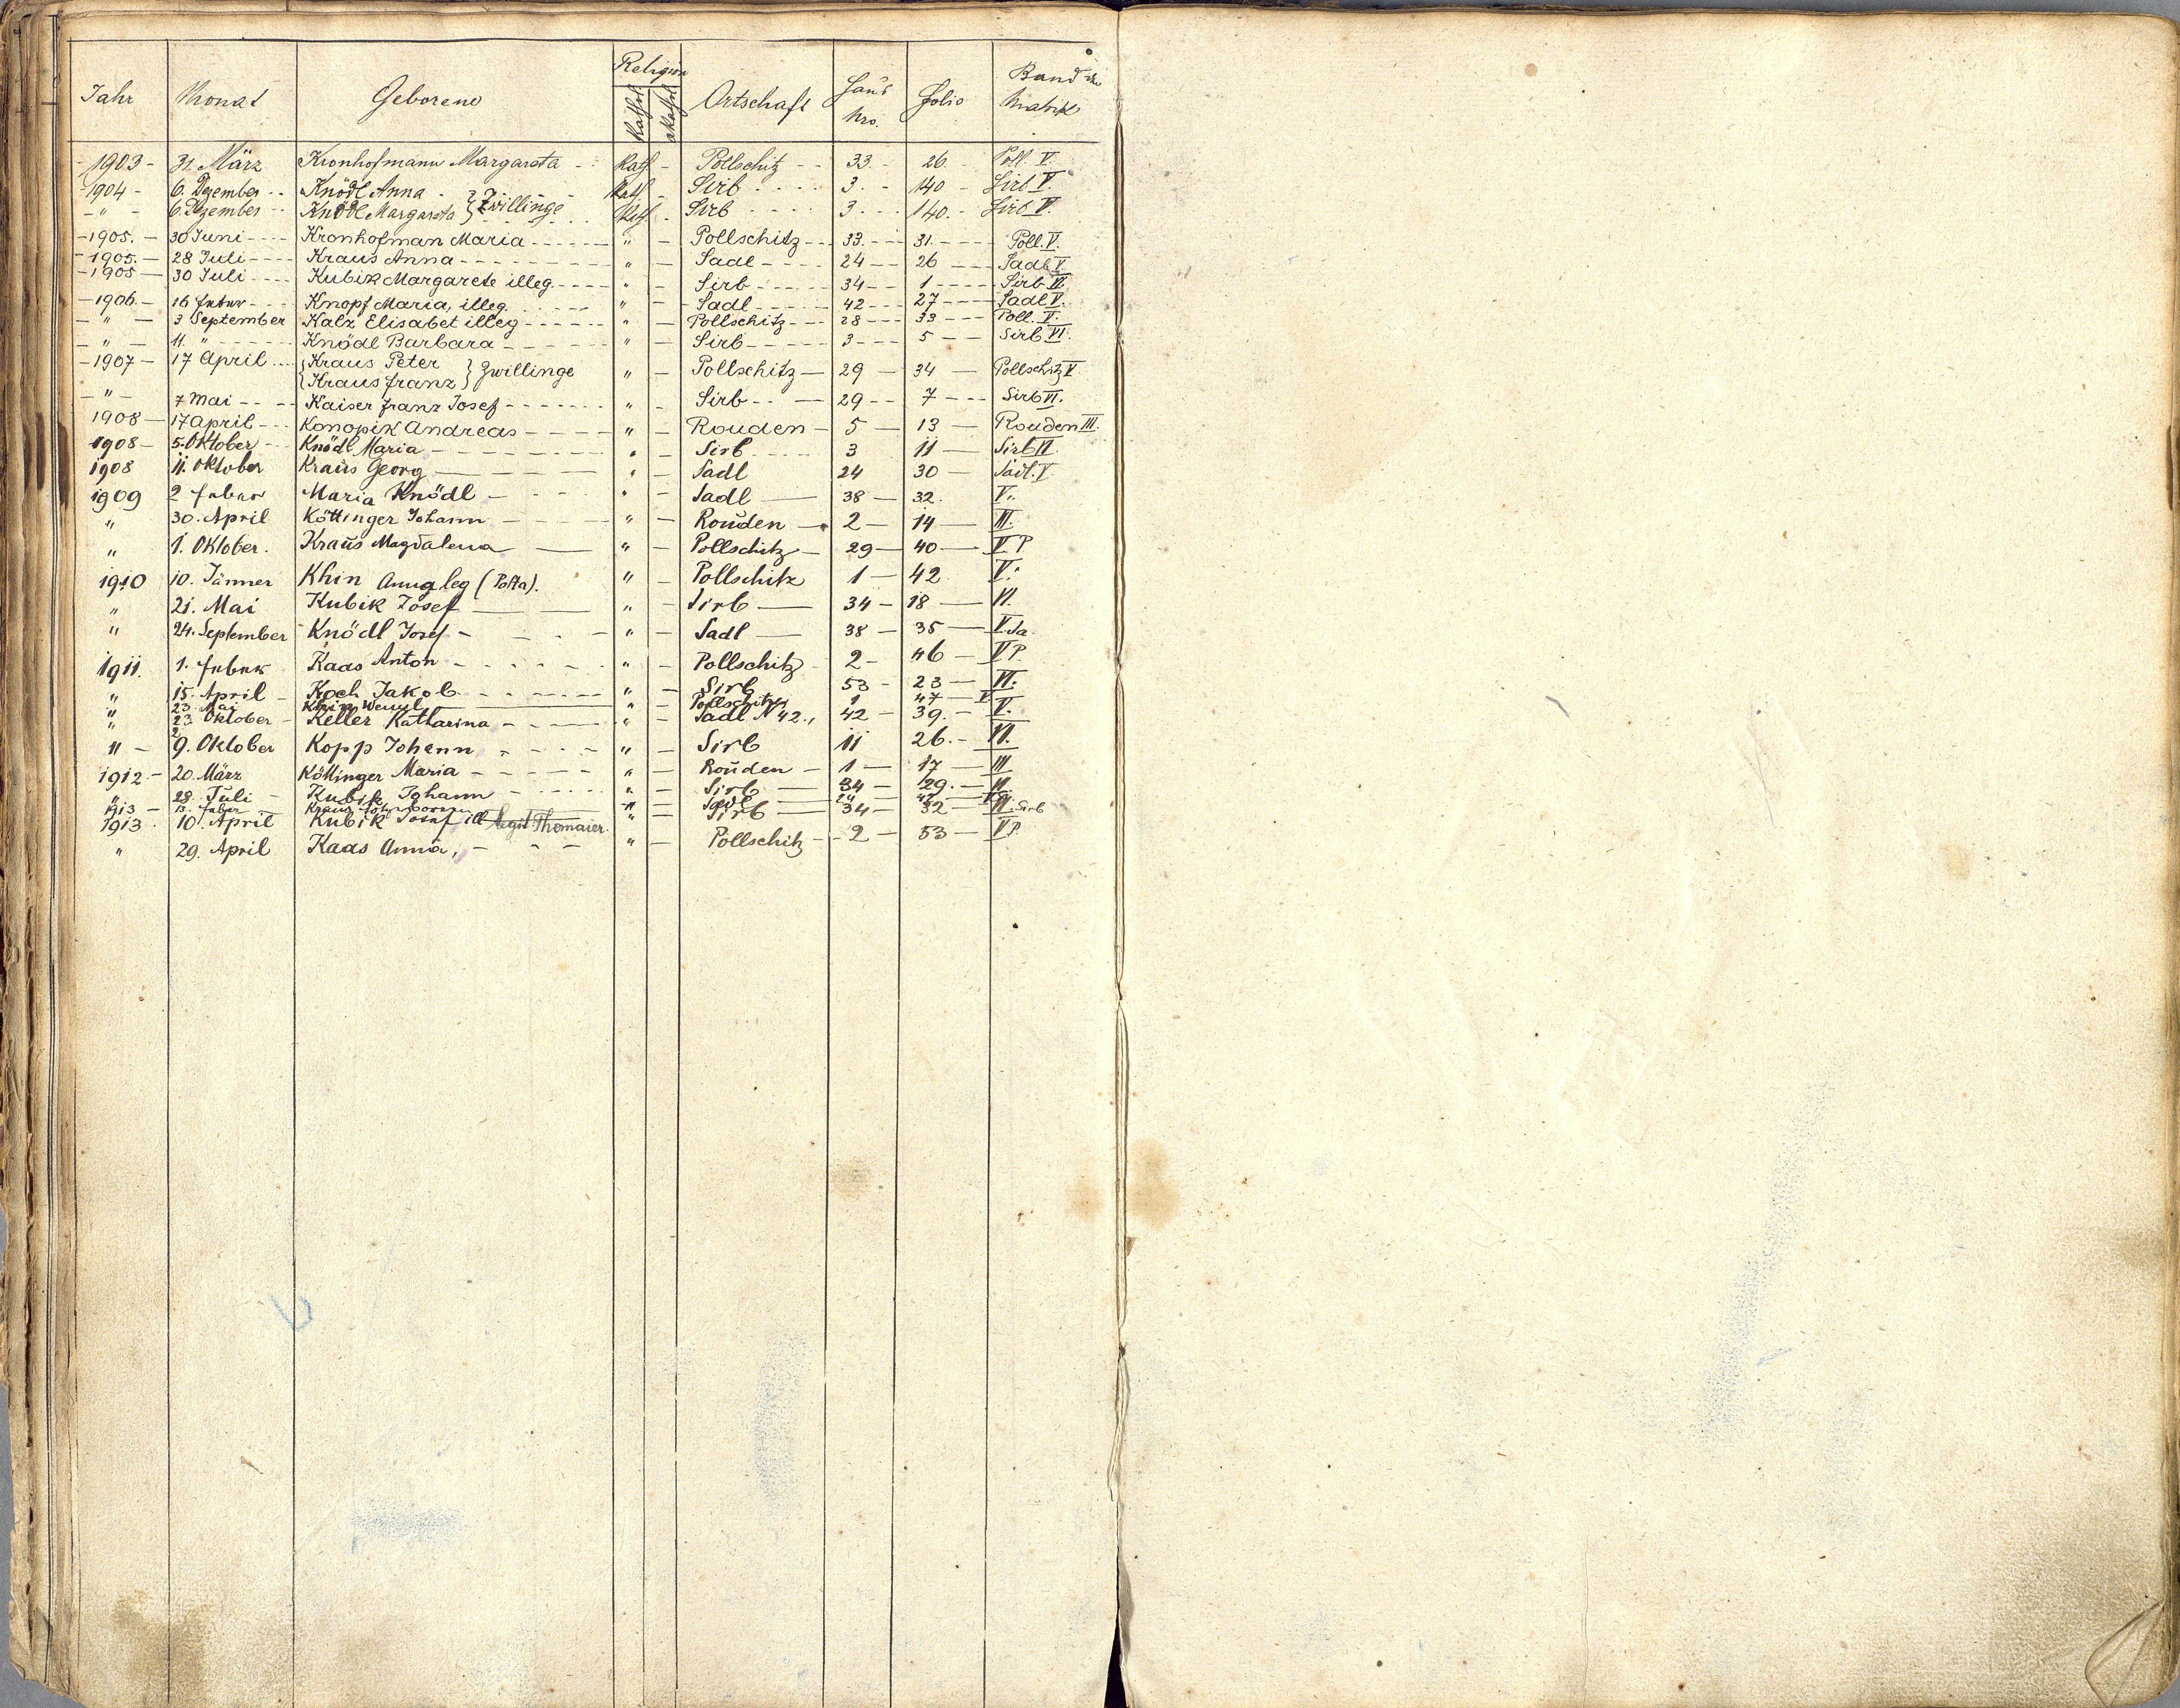 Jahr Monat Geborene Religion Ortschaft Haus Nro. Folio Band der Matrik
Kathol Akathol
- 1903 - 31. März Kronhofmann Margareta - - Kath. - Pollschitz - - 33. - 26. Poll. V.
- 1904 - 6. Dezember - - Knödl Anna - } Zwillinge - - Kath. - Sirb - - - - 3. - - 140 - Sirb V.
- " - 6. Dezember - - Knödl Margareta } Kath. - Sirb - - - - 3. - - 140. - Sirb V.
- 1905. - 30 Juni - - - - Kronhofman Maria - - - - - " - Pollschitz - - - 33. - - - 31. - - - - Poll. V.
- 1905. - 28 Juli - - - - Kraus Anna - - - - - - - - " - Sadl - - - - 24 - - 26 - - - Sadl V.
- 1905 - 30 Juli - - - - Kubik Margarete illeg. - - - - " - Sirb - - - - - 34 - - 1 - - - - Sirb VI.
- 1906. - 16 Feber - - - Knopf Maria, illeg. - - - - " - Sadl - - - - 42 - - - 27 - - - - Sadl V.
- " - 3 September Kalz Elisabet illeg - - - - - - " - Pollschitz - - - 28 - - - 33 - - - Poll. V.
- " - 11. " - - - - Knödl Barbara - - - - - - " - Sirb - - - - - 3 - - - 5 - - Sirb VI.
- 1907 - 17 April - - - { Kraus Peter } Zwillinge " - Pollschitz - 29 - 34 - Pollschitz V
{ Kraus Franz }
- " - 7 Mai - - - - Kaiser Franz Josef - - - - - - " - Sirb - - - 29 - - 7 - - - Sirb VI.
1908 - 17 April - - - Konopik Andreas - - - - - " - Rouden - 5 - 13 - Rouden III.
1908 - 5. Oktober - - Knödl Maria - - - - - - - " - Sirb - - - - 3 11 - Sirb VI
1908 11. Oktober Kraus Georg - - - " - Sadl 24 30 - Sadl. V
1909 2 Feber Maria Knödl - - - - " - Sadl - 38 - 32. V.
" 30. April Köttinger Johann - - - - " - Rouden - 2 - 14 - III.
" 1. Oktober. Kraus Magdalena - " - Pollschitz - 29 - 40 - V P
1910 10. Jänner Khin leg " - Pollschitz 1 - 42 V.
" 21. Mai Kubik Josef - - " - Sirb - 34 - 18 - VI.
" 24. September Knödl Josef - - - - " - Sadl - 38 - 35 - V. Sa.
1911. 1. Feber Kaas Anton - - - - - " - Pollschitz - 2 - 46 - V P.
" 15. April - Koch Jakob - - - - - " - Sirb 53 - 23 - VI.
" 23. Mai Khin Wenzl - " - Pollschitz 1 47 - V
" 23 Oktober - Keller Katharina - - - - " - Sadl N 42., 42 - 39. - V.
" - 29. Oktober Kopp Johann - - - - " - Sirb 11 26. - VI.
1912. - 20. März Köttinger Maria - - - - - " - Rouden - 1 - 17 - III
" 28. Juli - Kubik Johann - - - - " - Sirb - 34 - 29. - VI
1913 - 13. Feber Kraus " - Sadl - 24
1913. 10. April Kubik Josef ill legit. Thomaier. " - Sirb - 34 - 32 - VI. Sirb
" 29. April Kaas Anna, - - - " - Pollschitz - 2 - 53 - V P.